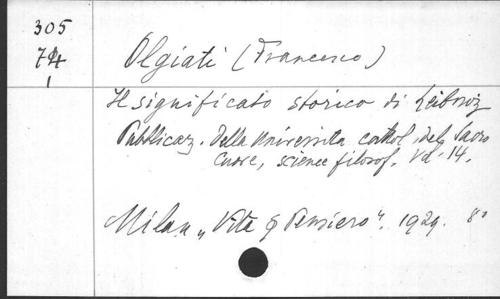 305
74
1
Olgiati (Francesco)
Il significato storico di Leibniz
Pubblicaz. della Universita cattol. del Sacro
Cuore, scienze filosof. Vol. 14.
Milan „Vita e Pensiero". 1929. 8°